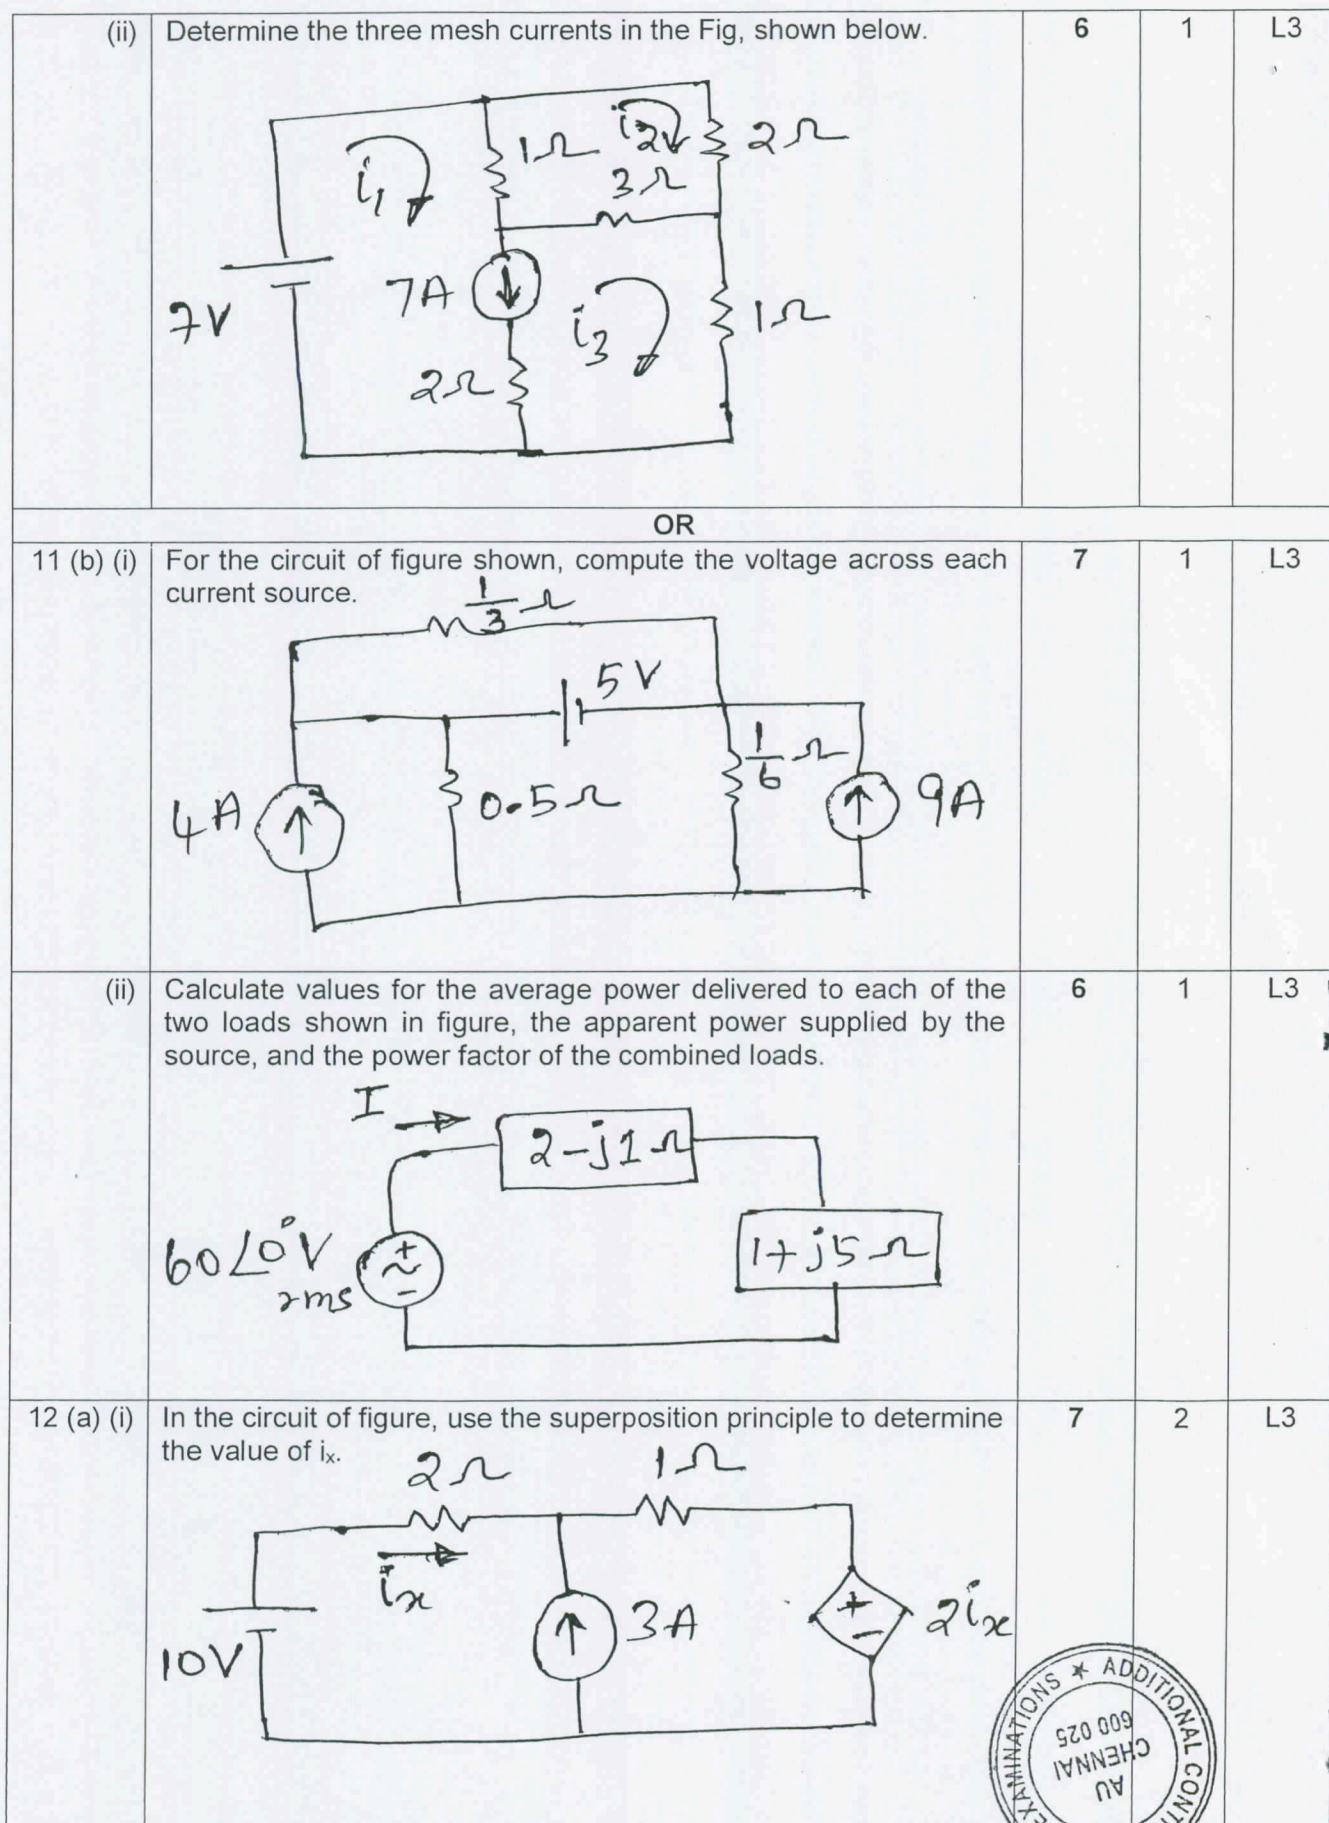 (ii) Determine the three mesh currents in the Fig, shown below. 6 1 L3
i₁ 1Ω i₂ 2Ω
3Ω
7V 7A i₃ 1Ω
2Ω
OR
11 (b) (i) For the circuit of figure shown, compute the voltage across each 7 1 L3
current source.
1/3 Ω
5V
4A 0.5Ω 1/6 Ω 9A
(ii) Calculate values for the average power delivered to each of the 6 1 L3
two loads shown in figure, the apparent power supplied by the
source, and the power factor of the combined loads.
I
2-j1Ω
60∠0° V + ~ - 1+j5Ω
rms
12 (a) (i) In the circuit of figure, use the superposition principle to determine 7 2 L3
the value of iₓ.
2Ω 1Ω
iₓ
10V 3A + - 2iₓ
EXAMINATIONS ★ ADDITIONAL CONT
AU
CHENNAI
600 025